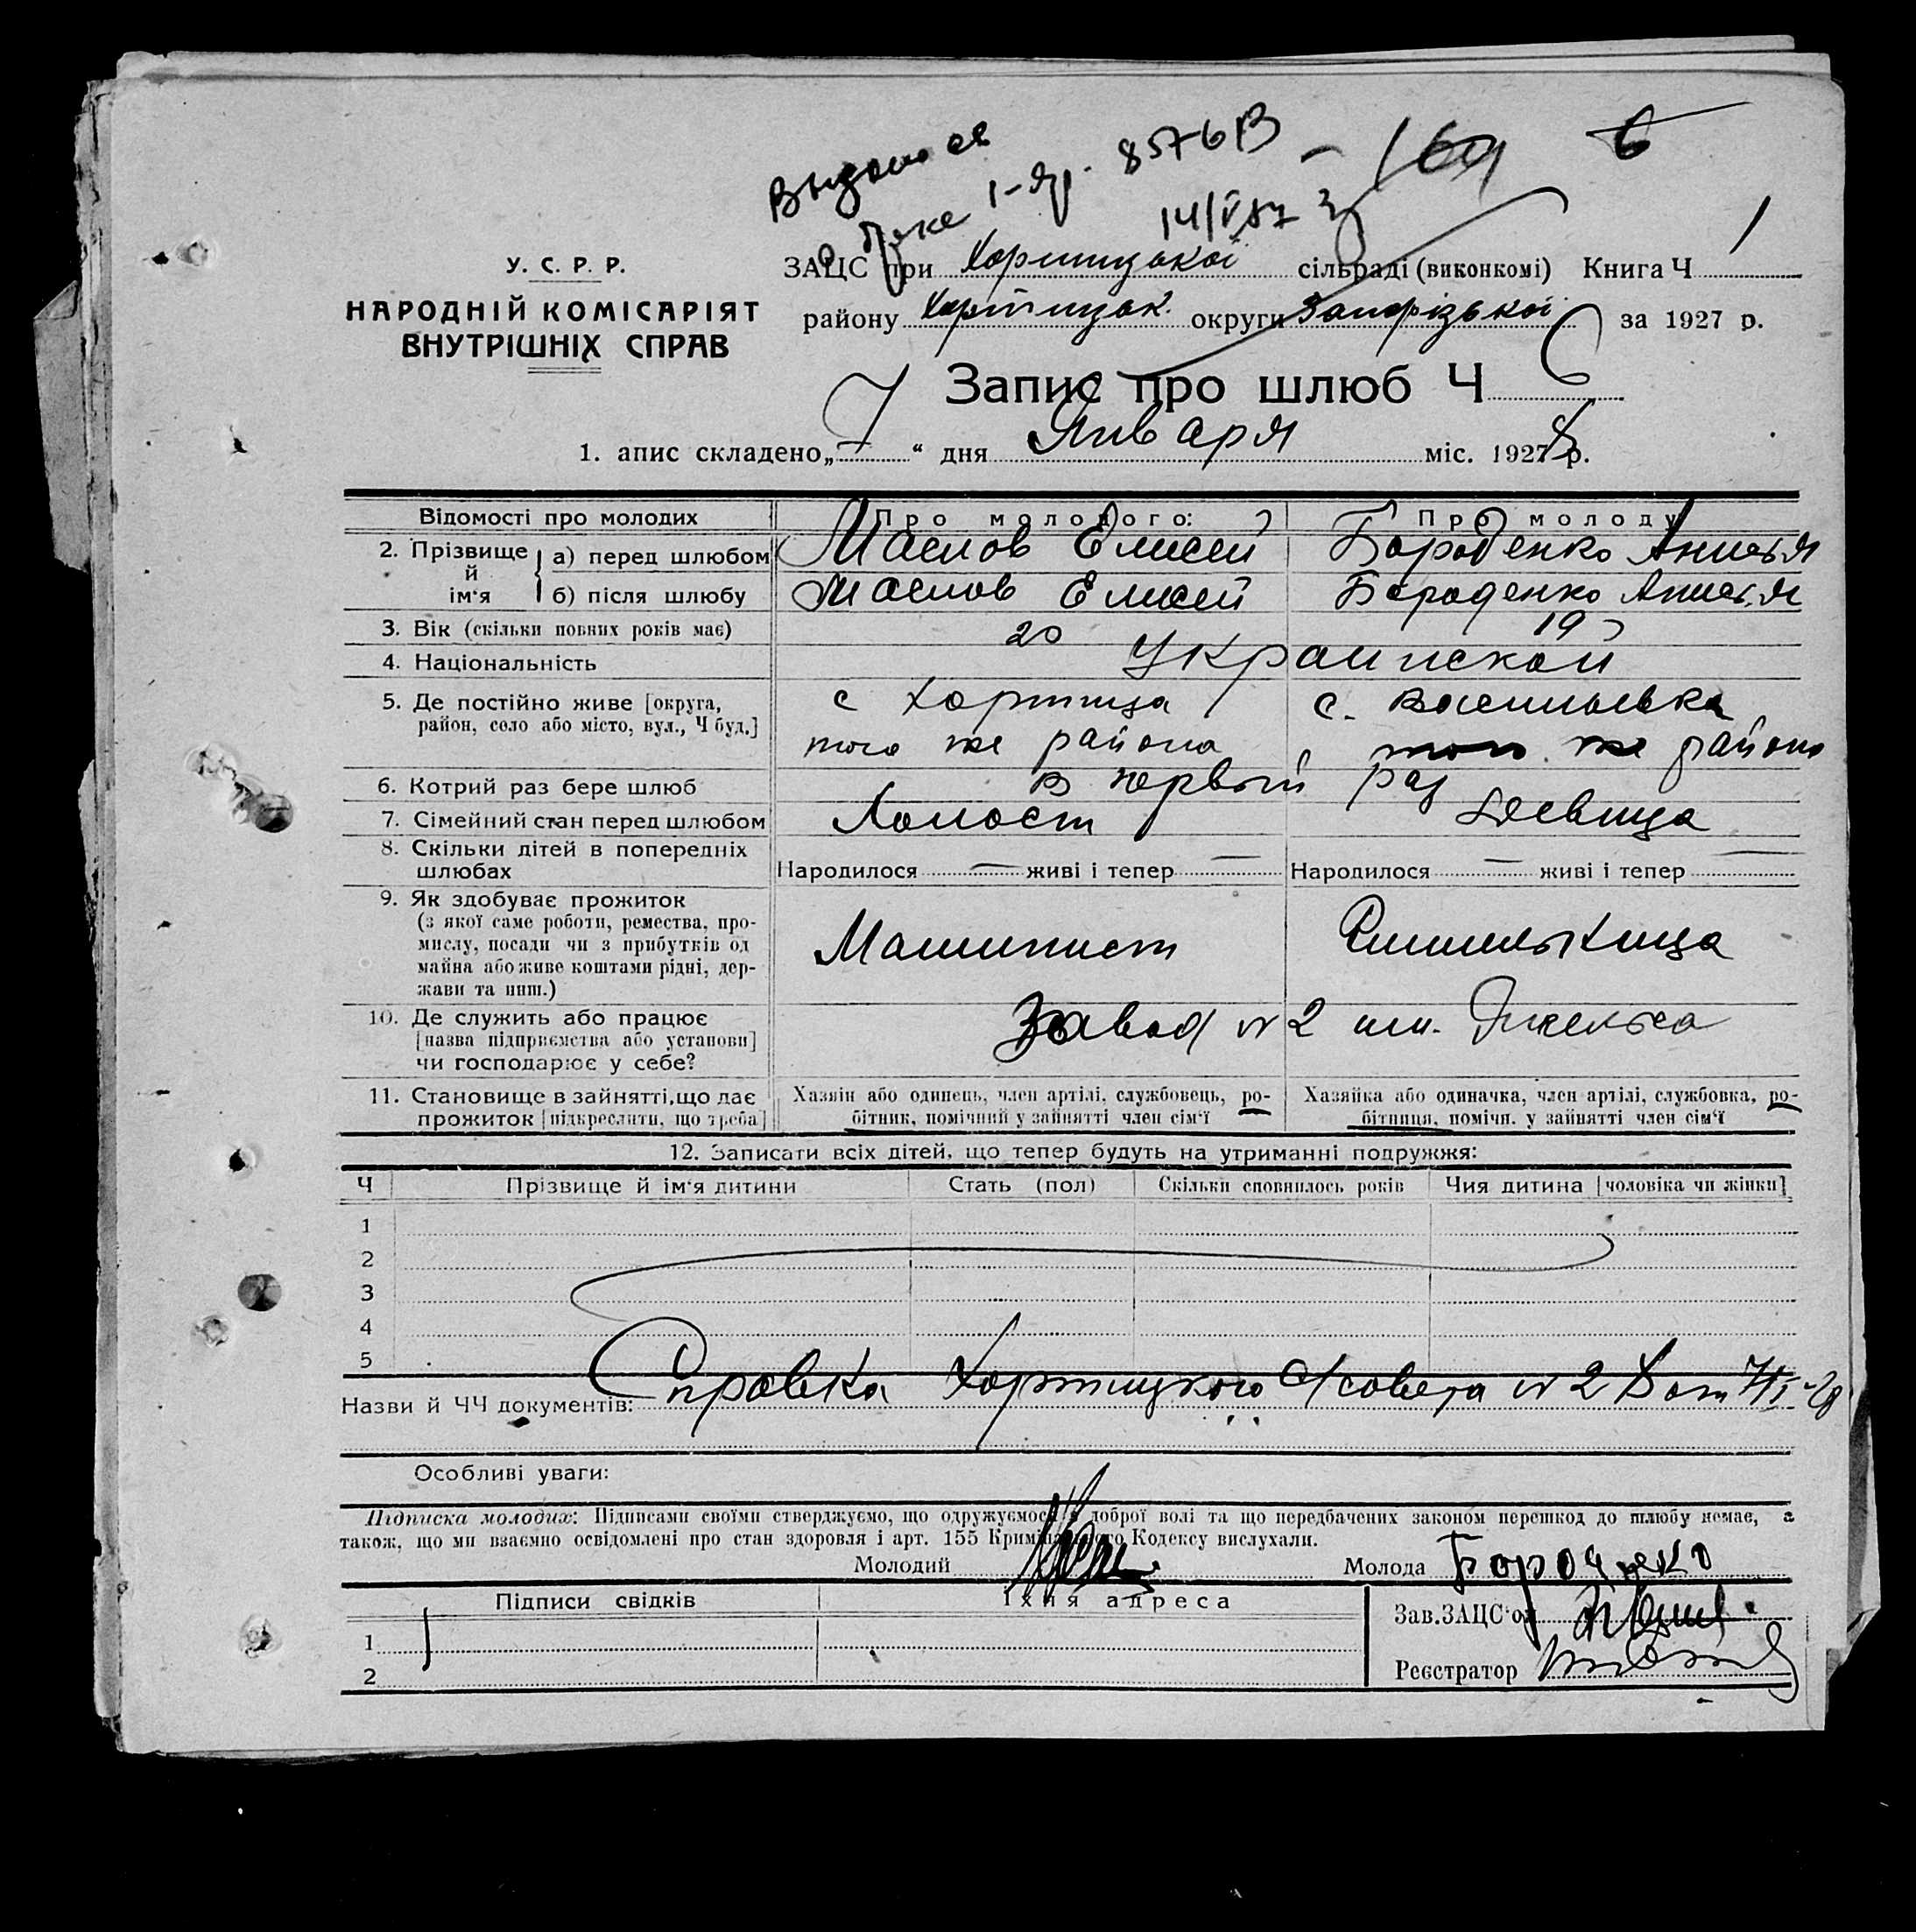 Выдано св
о браке 1-яр. 8576В
14/V 87
6
У. С. Р. Р.
НАРОДНІЙ КОМІСАРІЯТ
ВНУТРІШНІХ СПРАВ
ЗАЦС при Хортицької сільраді (виконкомі) Книга Ч 1
району Хортицьк. округи Запорізької за 1927 р.
Запис про шлюб Ч 6
1. апис складено „7“ дня Января міс. 1928 р.
Відомості про молодих Про молодого: Про молоду
2. Прізвище й ім‘я а) перед шлюбом Маслов Елисей Бороденко Анисья
б) після шлюбу Маслов Елисей Бороденко Анисья
3. Вік (скільки повних років має) 20 19
4. Національність Украинской
5. Де постійно живе [округа, с Хортица с. Васильевка
район, село або місто, вул., Ч буд.] того же района того же района
6. Котрий раз бере шлюб в первый раз
7. Сімейний стан перед шлюбом Холост Девица
8. Скільки дітей в попередніх
шлюбах Народилося — живі і тепер — Народилося — живі і тепер —
9. Як здобуває прожиток
(з якої саме роботи, ремества, про-
мислу, посади чи з прибутків од Машинист
майна або живе коштами рідні, дер-
жави та инш.)
10. Де служить або працює Завод № 2 им. Энгельса
[назва підприємства або установи]
чи господарює у себе?
11. Становище в зайнятті, що дає Хазяін або одинець, член артілі, службовець, ро- Хазяйка або одиначка, член артілі, службовка, ро-
прожиток [підкреслити, що треба] бітник, помічний у зайнятті член сім‘ї бітниця, помічн. у зайнятті член сім‘ї
12. Записати всіх дітей, що тепер будуть на утриманні подружжя:
Ч Прізвище й ім‘я дитини Стать (пол) Скільки сповнилось років Чия дитина [чоловіка чи жінки]
1
2
3
4
5
Назви й ЧЧ документів: Справка Хортицкого С/совета № 2 от 7/I-28
Особливі уваги:
Підписка молодих: Підписами своїми стверджуємо, що одружуємося з доброї волі та що передбачених законом перешкод до шлюбу немає, а
також, що ми взаємно освідомлені про стан здоровля і арт. 155 Кримінального Кодексу вислухали.
Молодий Молода Бороденко
Підписи свідків Їхня адреса Зав. ЗАЦС‘ом
1
2 Реєстратор